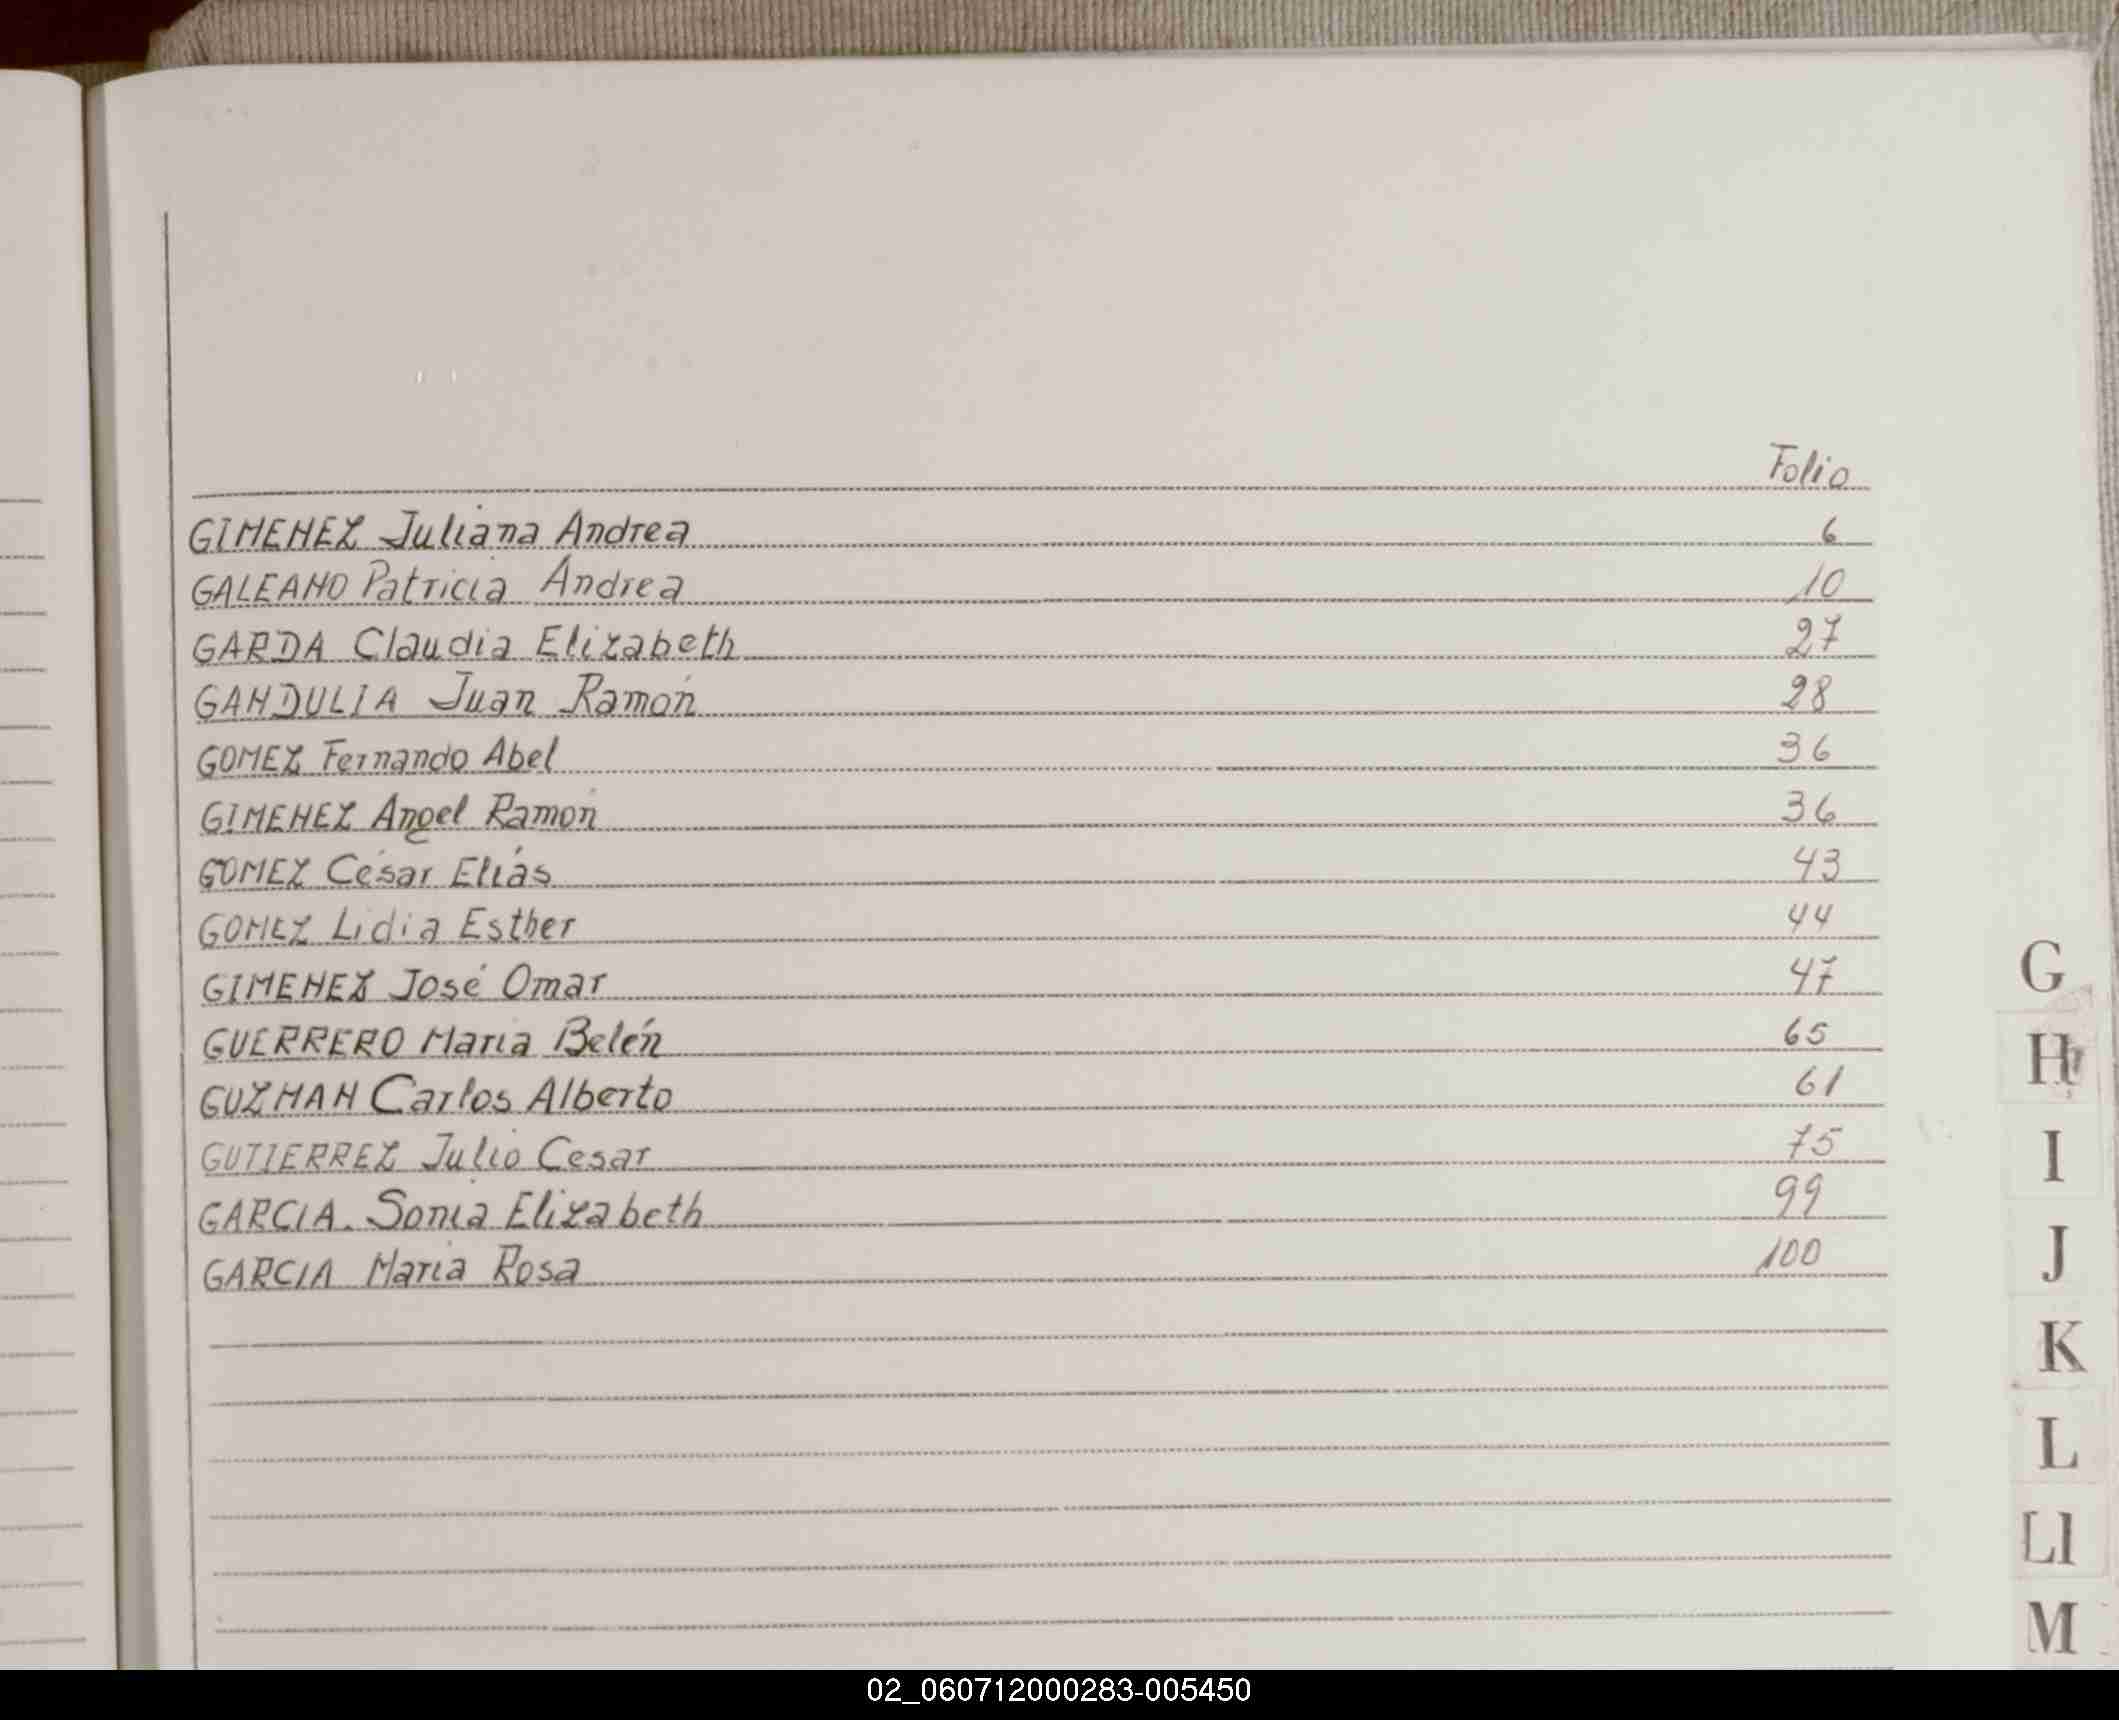 Folio
GIMENEZ Juliana Andrea 6
GALEANO Patricia Andrea 10
GARDA Claudia Elizabeth 27
GANDULIA Juan Ramón 28
GOMEZ Fernando Abel 36
GIMENEZ Angel Ramón 36
GOMEZ César Elías 43
GOMEZ Lidia Esther 44
GIMENEZ José Omar 47
GUERRERO María Belén 65
GUZMAN Carlos Alberto 61
GUTIERREZ Julio Cesar 75
GARCIA. Sonia Elizabeth 99
GARCIA María Rosa 100
G
H
I
J
K
L
Ll
M
02_060712000283-005450